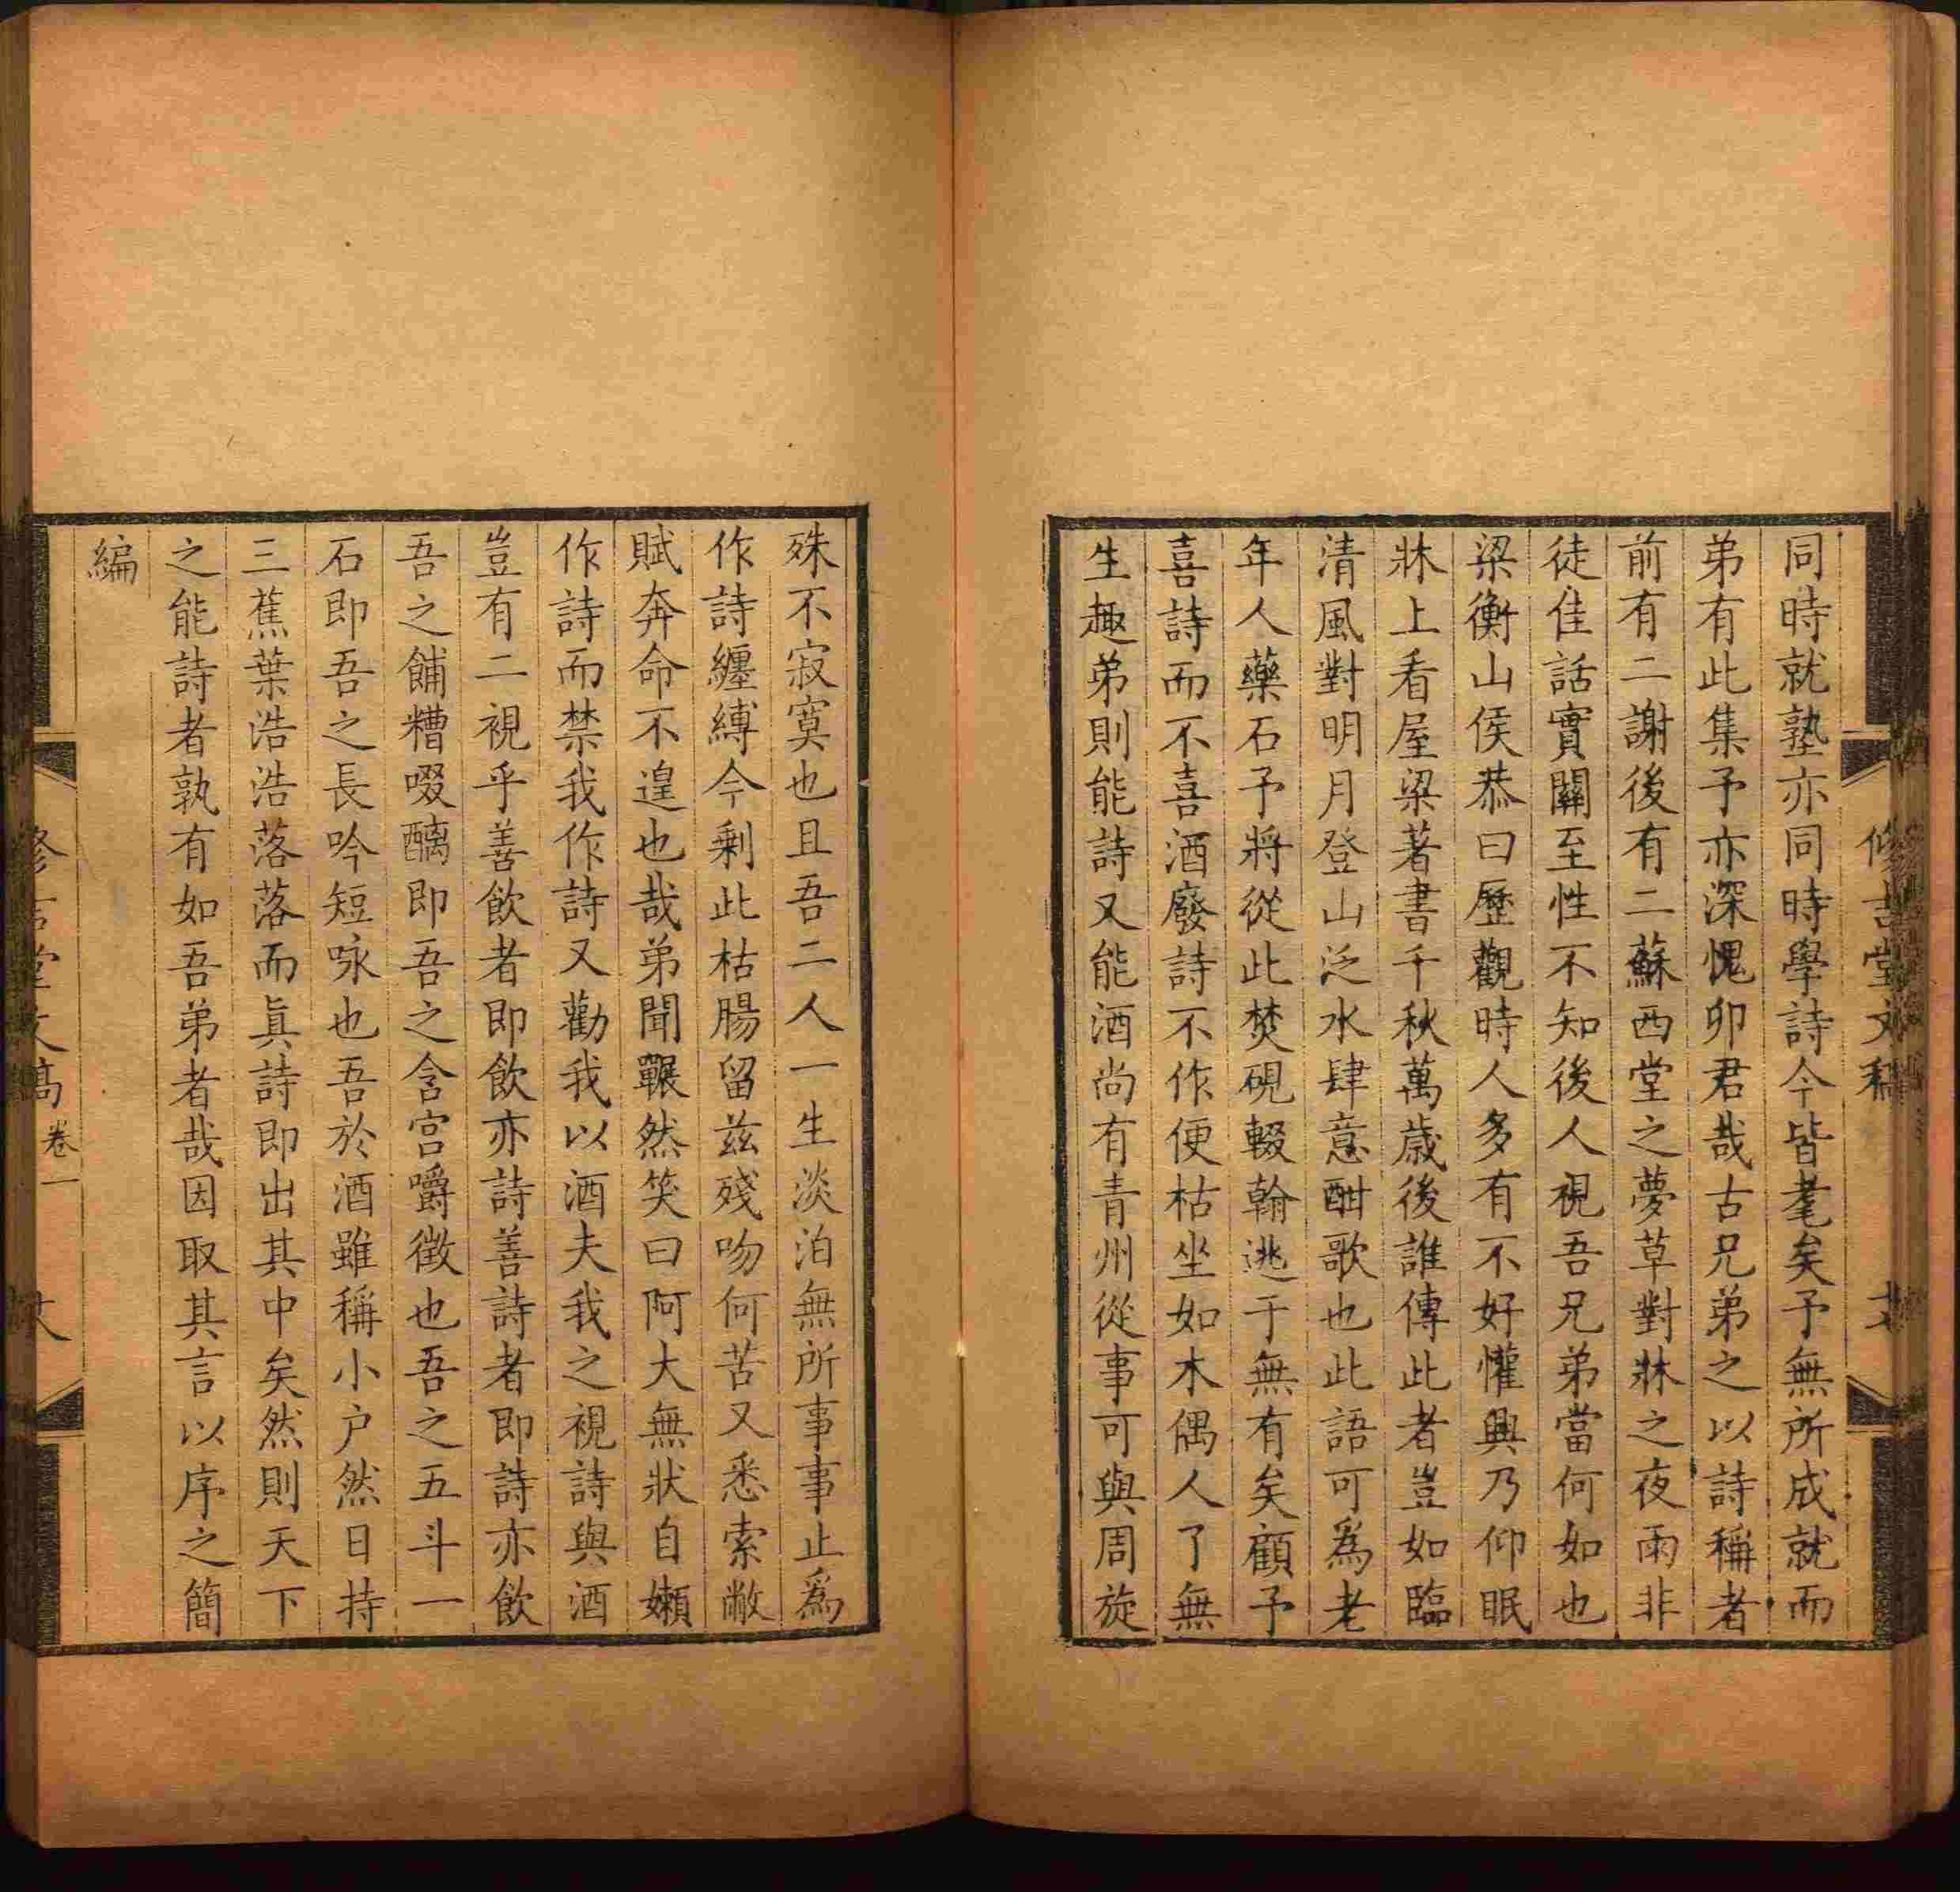 同時就塾亦同時學詩今皆耄矣予無所成就而
弟有此集予亦深愧卯君哉古兄弟之以詩稱者
前有二謝後有二蘇西堂之夢草對牀之夜雨非
徒佳話實關至性不知後人視吾兄弟當何如也
梁衡山侯恭曰歷觀時人多有不好懽興乃仰眠
牀上看屋梁著書千秋萬歲後誰傳此者豈如臨
清風對明月登山泛水肆意酣歌也此語可爲老
年人藥石予將從此焚硯輟翰逃于無有矣顧予
喜詩而不喜酒廢詩不作便枯坐如木偶人了無
生趣弟則能詩又能酒尚有青州從事可與周旋
殊不寂寞也且吾二人一生淡泊無所事事止爲
作詩纏縛今剩此枯腸留茲殘吻何苦又悉索敝
賦奔命不遑也哉弟聞囅然笑曰阿大無狀自嬾
作詩而禁我作詩又勸我以酒夫我之視詩與酒
豈有二視乎善飲者即飲亦詩善詩者即詩亦飲
吾之餔糟啜醨即吾之含宮嚼徵也吾之五斗一
石即吾之長吟短咏也吾於酒雖稱小户然日持
三蕉葉浩浩落落而眞詩即出其中矣然則天下
之能詩者孰有如吾弟者哉因取其言以序之簡
編
堂文稿
卷一